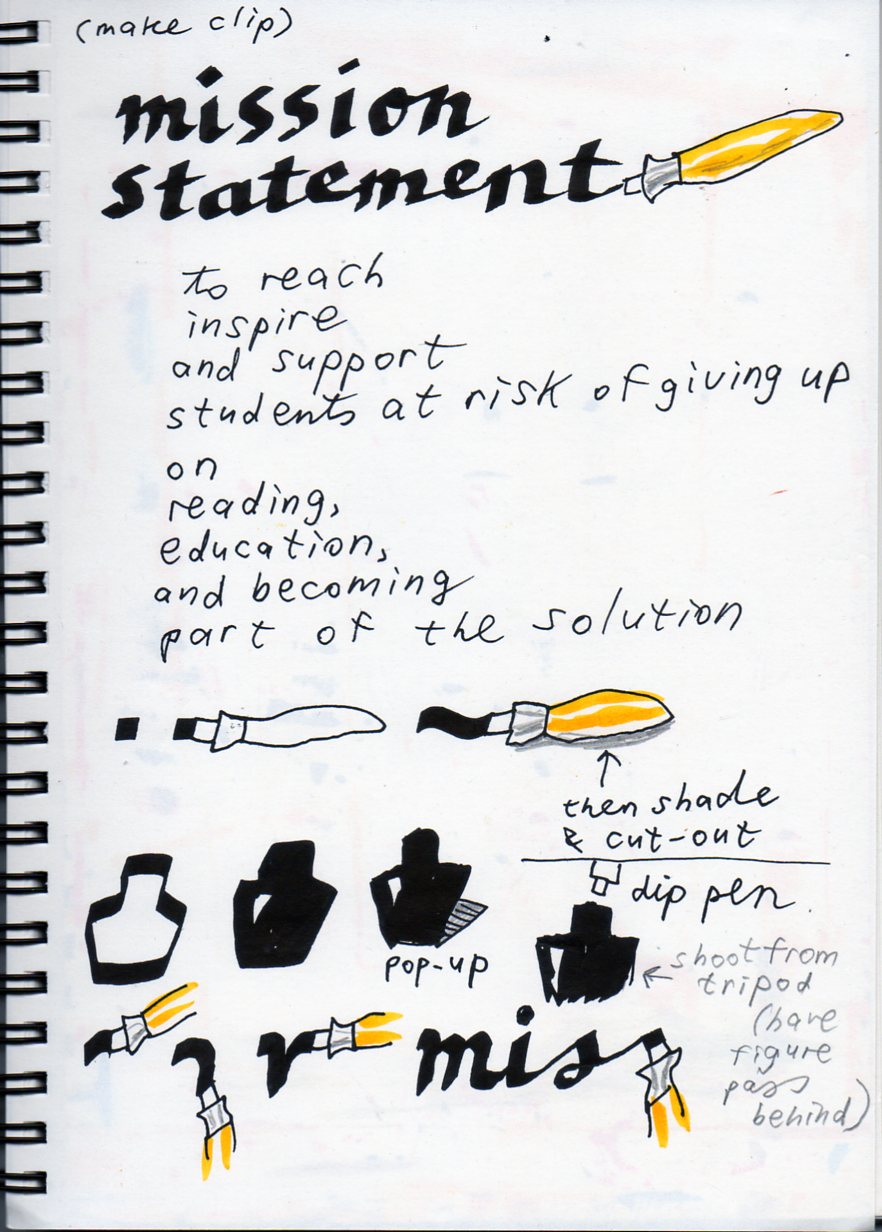 (make clip)
mission
statement
to reach
inspire
and support
students at risk of giving up
on
reading,
education,
and becoming
part of the solution
then shade
& cut-out
dip pen
pop-up
shoot from
tripod
(have
figure
pass
behind)
mis